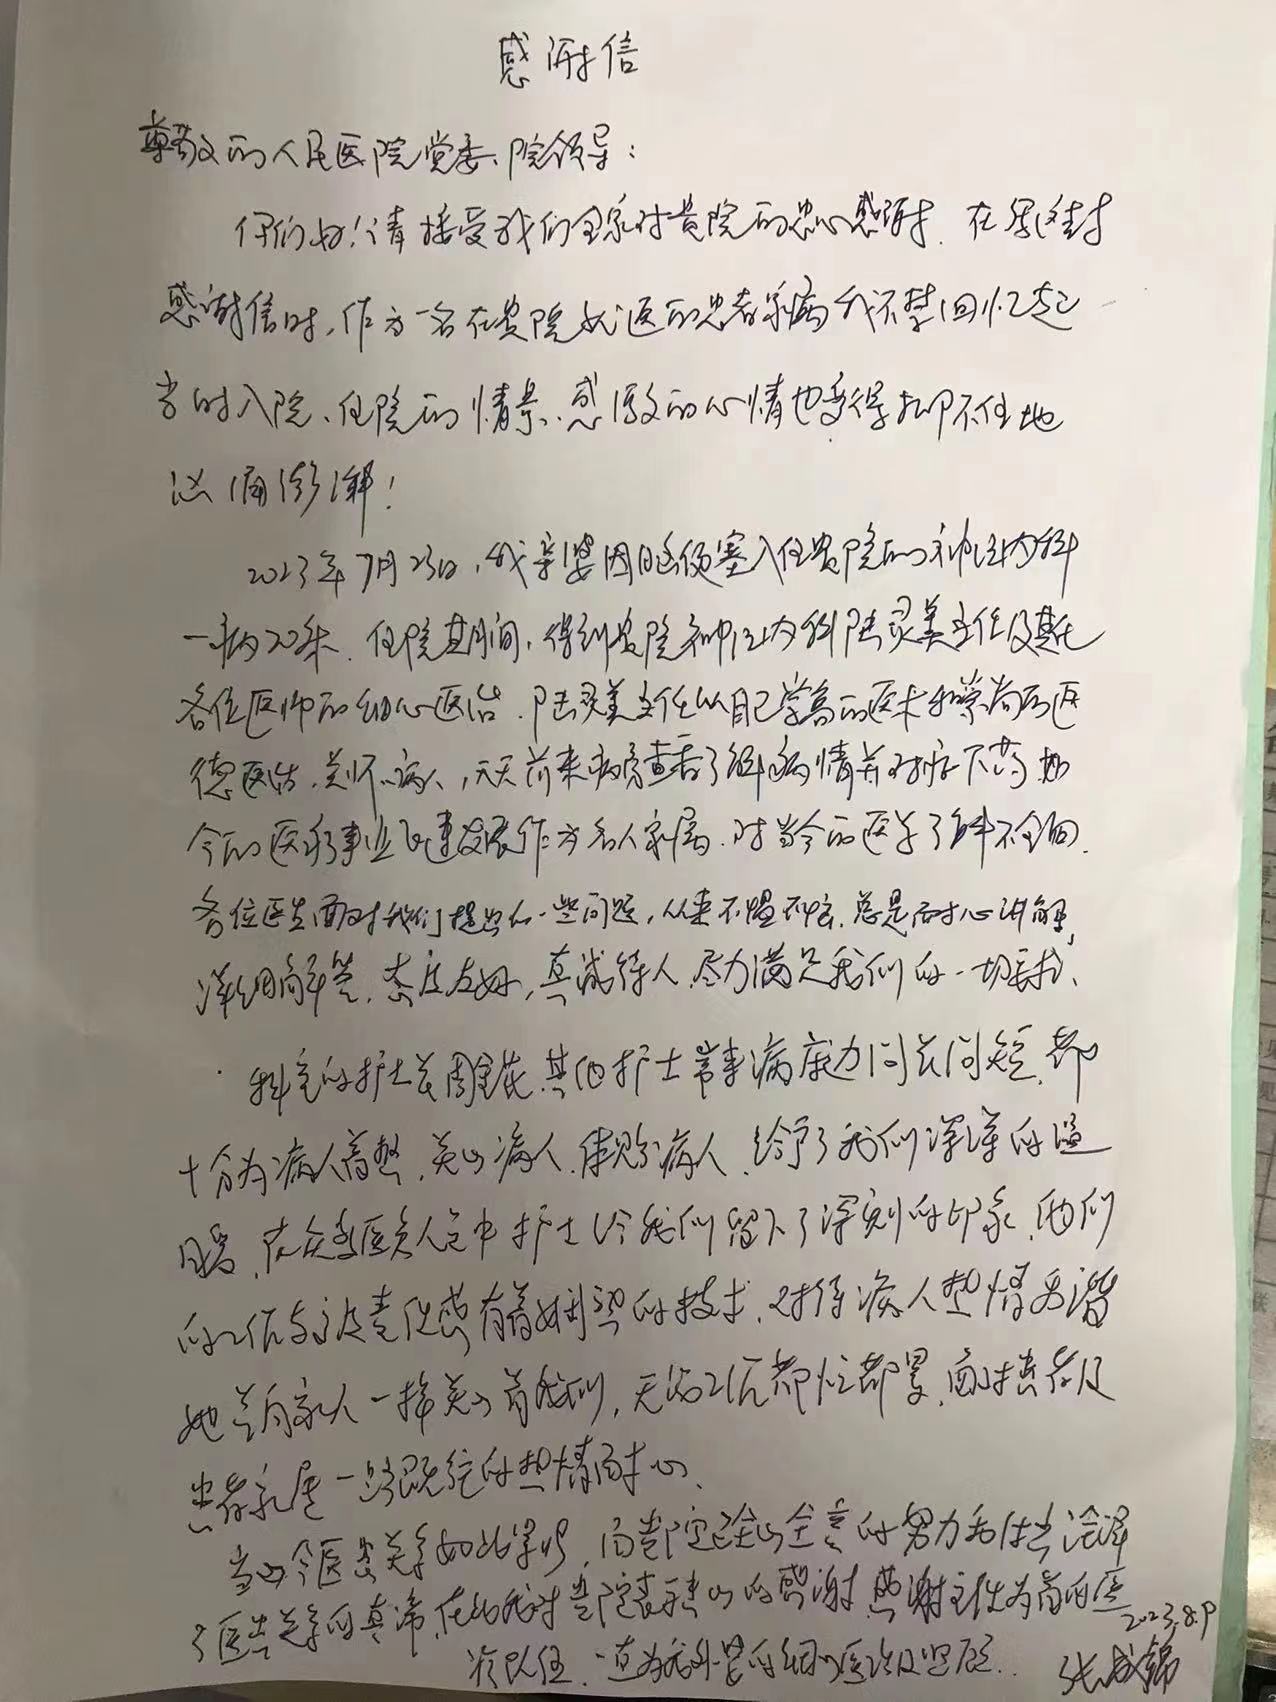 感谢信
尊敬的人民医院党委、院领导：
你们好！请接受我们全家对贵院的忠心感谢、在写这封
感谢信时，作为一名在贵院就医的患者家属我不禁回忆起
当时入院、住院的情景、感激的心情也变得抑不住地
汹涌澎湃！
2023年7月23日，我家婆因脑梗塞入住贵院的神经内科
一病区20床、住院期间，得到贵院神经内科陆灵美主任及其他
各位医师的细心医治、陆灵美主任以自己学高的医术和崇尚的医
德医治、关怀病人，天天前来病房查看了解病情并对症下药、如
今的医疗事业飞速发展作为名人家属、对当今的医学了解不全面、
各位医生面对我们提出的一些问题，从来不愠不怒、总是耐心讲解，
详细解答、态度友好，真诚待人、尽力满足我们的一切要求、
科室的护士长周金花、其他护士常来病床边问长问短、都
十分为病人着想、关心病人、体贴病人、给予了我们深深的温
暖、在众多医务人员中护士给我们留下了深刻的印象、她们
的工作与责任感有着娴熟的技术、对待病人热情和谐
她像自家人一样关心着我们，无论工作都忙都累、面对患者及
患者家属一如既往的热情耐心、
当今医患关系如此紧张，而贵院全心全意的努力和付出诠释
了医患关系的真谛、在此我对贵院表示衷心的感谢、感谢主任为首的医
疗队伍、一直为我外婆的细心医治及照顾、
2023.8.9
张成锦